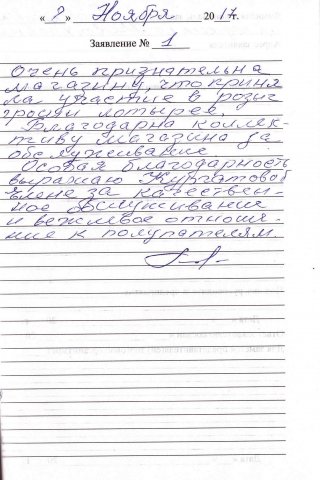 « 2 » Ноября 2017г.
Заявление № 1
Очень признательна
магазину, что приня
ла участие в розыг
рыши лотереи.
Благодарна коллек-
тиву магазина за
обслуживание
Особая благодарность
выражаю Курбатовой
Елене за качествен-
ное обслуживание
и вежливое отноше-
ние к покупателям.